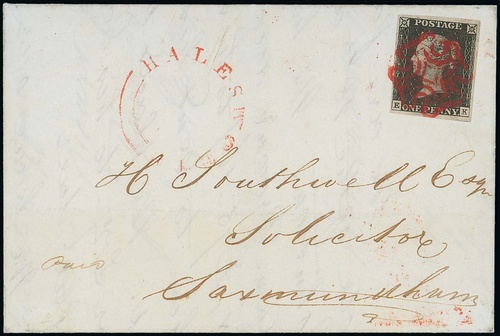 POSTAGE
E ONE PENNY K
H Southwell Esqr
Solicitor
Paid
Saxmundham